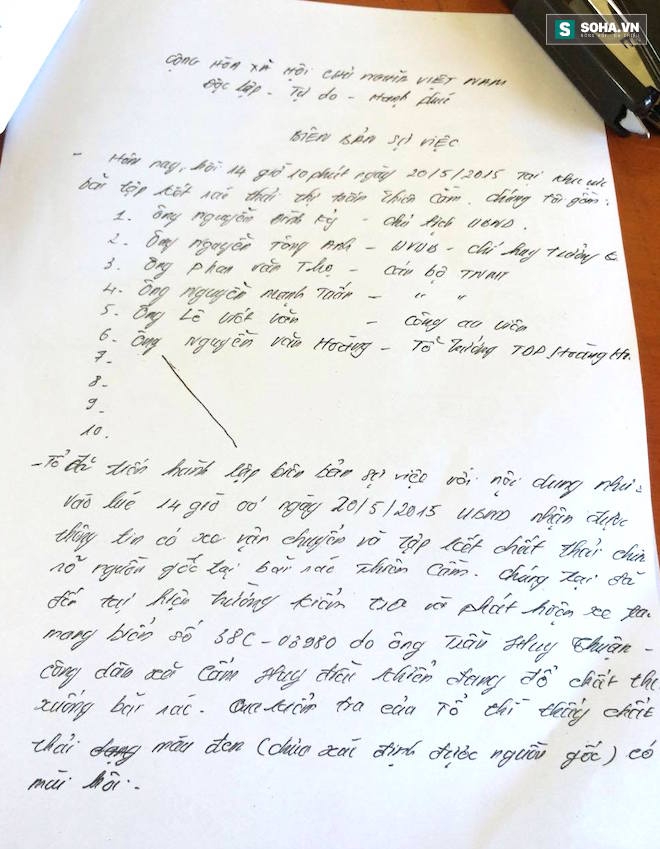 SOHA.VN
CỘNG HÒA XÃ HỘI CHỦ NGHĨA VIỆT NAM
Độc lập - Tự do - Hạnh phúc
BIÊN BẢN SỰ VIỆC
- Hôm nay, hồi 14 giờ 10 phút ngày 20/5/2015 Tại khu vực
bãi tập kết rác thải thị trấn Thiên Cầm. Chúng tôi gồm:
1. Ông Nguyễn Đình Kỷ - Chủ tịch UBND.
2. Ông Nguyễn Tông Anh - UVUB - Chỉ huy trưởng
3. Ông Phan Văn Thọ - Cán bộ TNMT
4. Ông Nguyễn Mạnh Tuấn - " "
5. Ông Lê Viết Văn - Công an viên
6. Ông Nguyễn Văn Hoàng - Tổ trưởng TDP
7-
8-
9-
10.
- Tổ đã tiến hành lập biên bản sự việc với nội dung như:
Vào lúc 14 giờ 00' ngày 20/5/2015 UBND nhận được
thông tin có xe vận chuyển và tập kết chất thải chưa
rõ nguồn gốc tại bãi rác Thiên Cầm. Chúng tại đã
đến tại hiện trường kiểm tra và phát hiện xe
mang biển số 38C-03980 do ông Trần Huy Thuận -
công dân xã Cẩm Huy điều khiển đang đổ chất thả
xuống bãi rác. Qua kiểm tra của Tổ thì thấy chất
thải dạng màu đen (chưa xác định được nguồn gốc) có
mùi hôi.